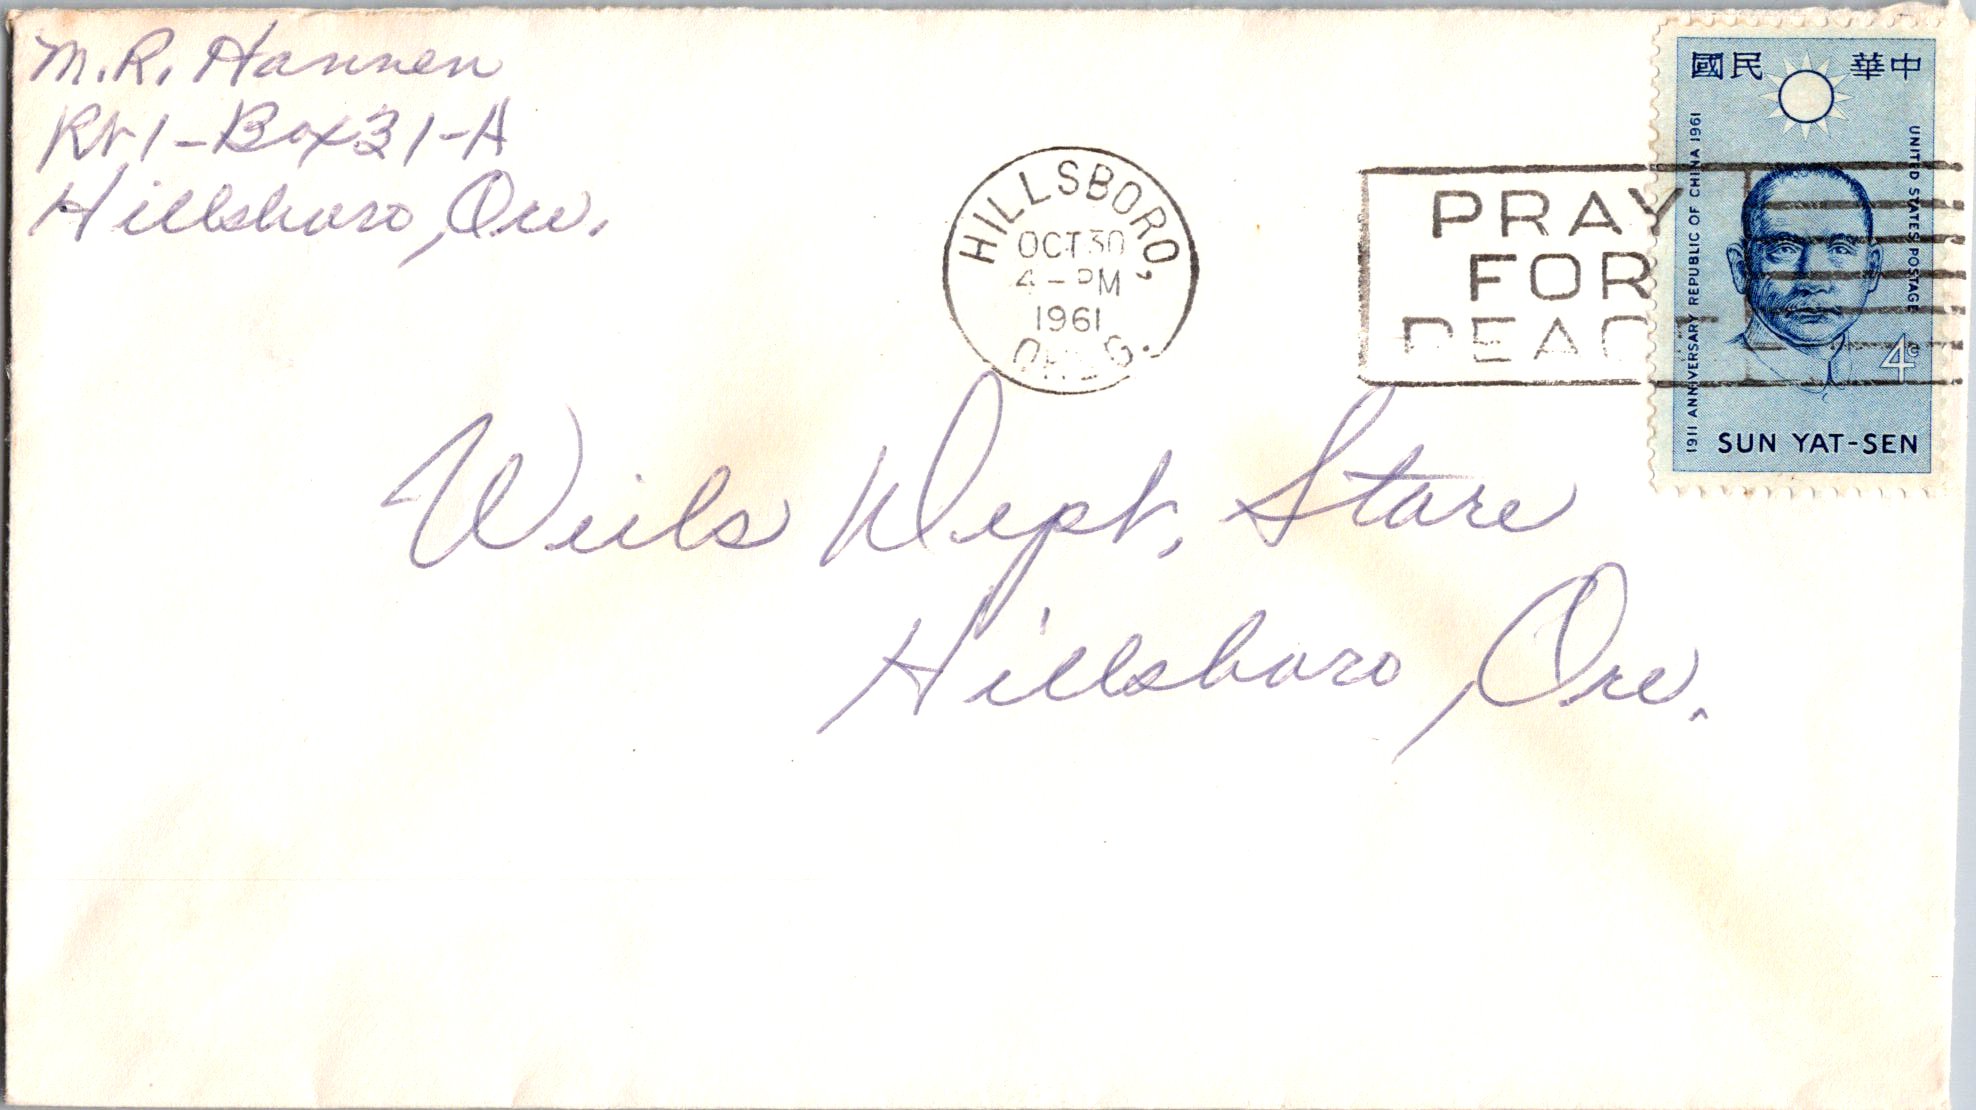 M.R. Hannen
Rt 1-Box 31-A
Hillsboro, Ore.
HILLSBORO,
OCT 30
4-PM
1961
OREG.
PRAY
FOR
PEACE
國民 華中
1911 ANNIVERSARY REPUBLIC OF CHINA 1961
UNITED STATES POSTAGE
4¢
SUN YAT-SEN
Weils Dept. Store
Hillsboro, Ore.